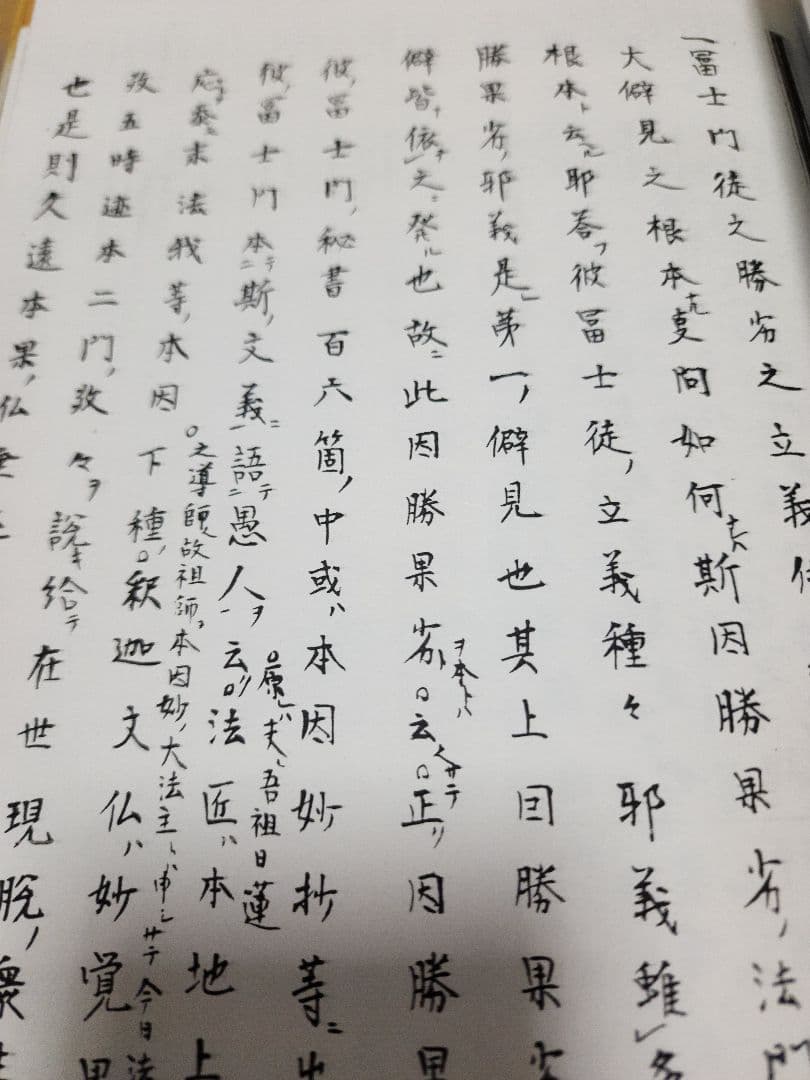 一冨士門徒之勝劣之立義
大僻見之根本ナル叓問如何ナル斯因勝果劣ノ法門
根本ト云ル耶荅フ彼冨士徒ノ立義種々耶義雖
勝果劣ノ耶義是レ第一ノ僻見也其上因勝果劣
僻皆ナ依テ之ニ発ル也故ニ此因勝果劣ヲ本トハ云クサテ正ク因勝果
彼ノ冨士門ノ秘書百六箇ノ中或ハ本因妙抄等ニ出
彼ノ冨士門本ニテ斯ノ文義ニ語ニテ愚人ヲ云ク法匠ハ本地上
原レハ夫レ吾祖日蓮
応泰ニ末法我等ノ本因下種ノ釈迦文仏ハ妙覚果
之導師故祖師ヲ本因妙ノ大法主トハ申シサテ今日法
改五時迹本二門ノ改々ヲ説キ給テ在世現脱ノ衆
也是則久遠本果ノ仏